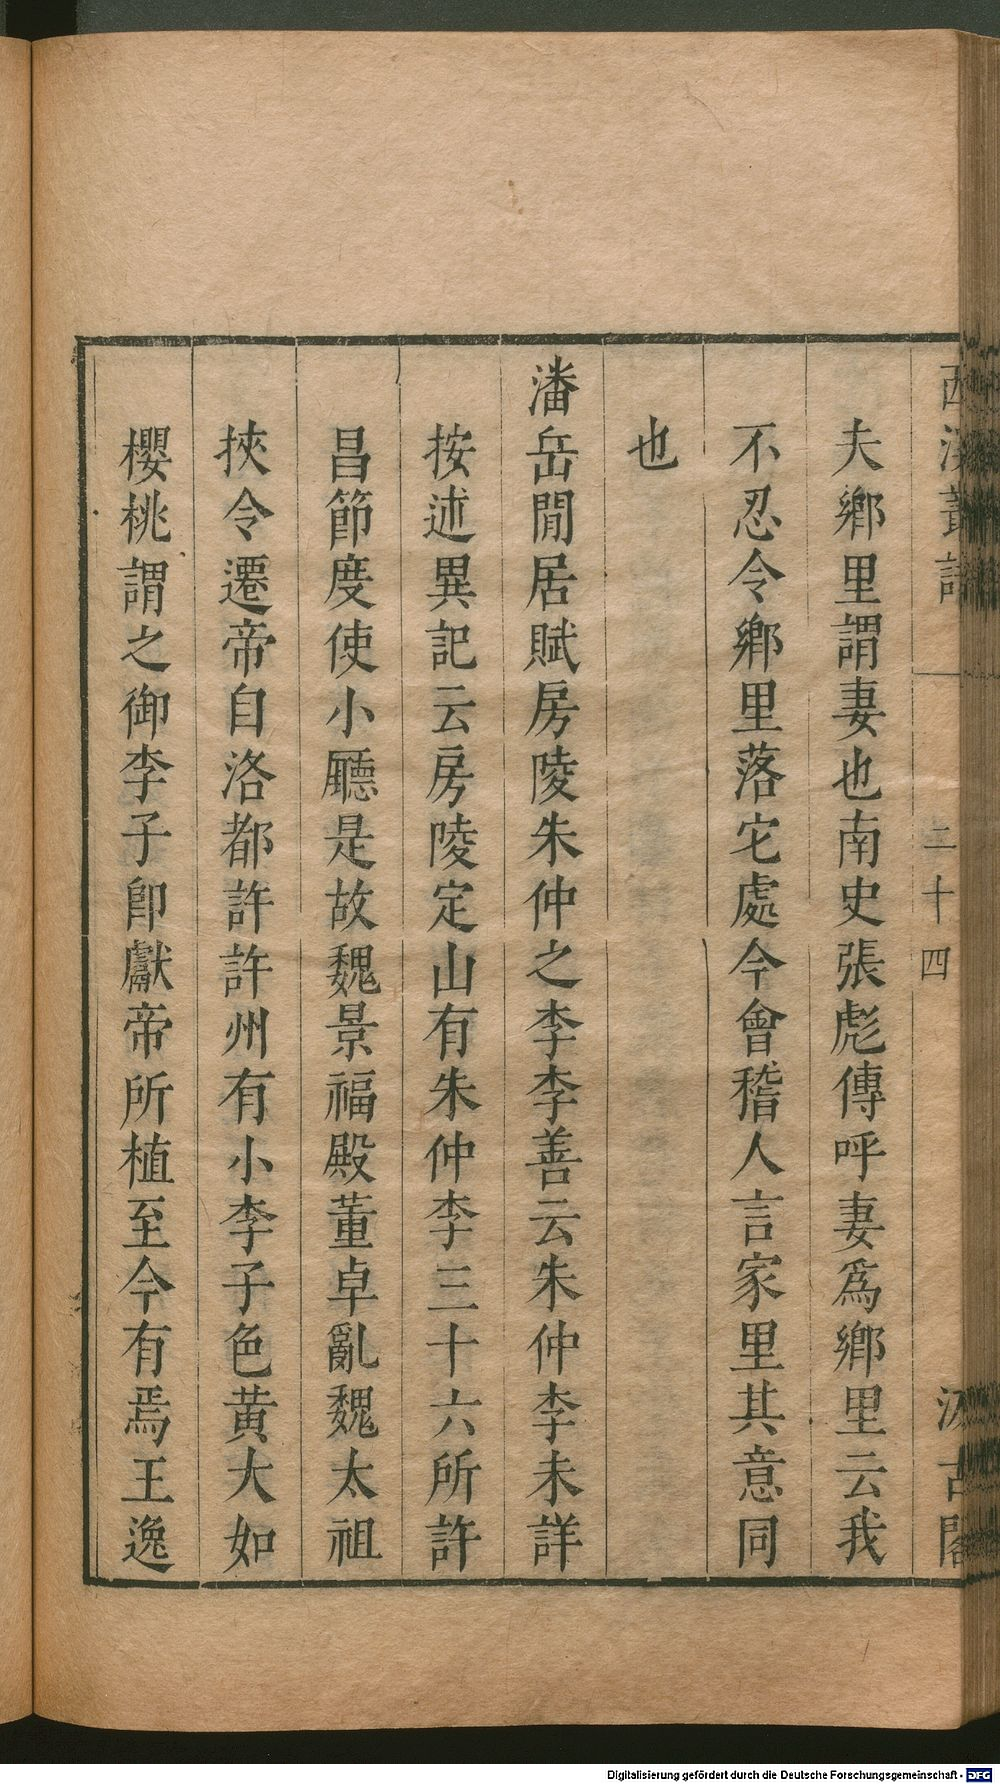 西溪叢語 二十四 汲古閣
夫鄉里謂妻也南史張彪傳呼妻爲鄉里云我
不忍令鄉里落宅處今會稽人言家里其意同
也
潘岳閒居賦房陵朱仲之李李善云朱仲李未詳
按述異記云房陵定山有朱仲李三十六所許
昌節度使小廳是故魏景福殿董卓亂魏太祖
挾令遷帝自洛都許許州有小李子色黃大如
櫻桃謂之御李子卽獻帝所植至今有焉王逸
Digitalisierung gefördert durch die Deutsche Forschungsgemeinschaft - DFG